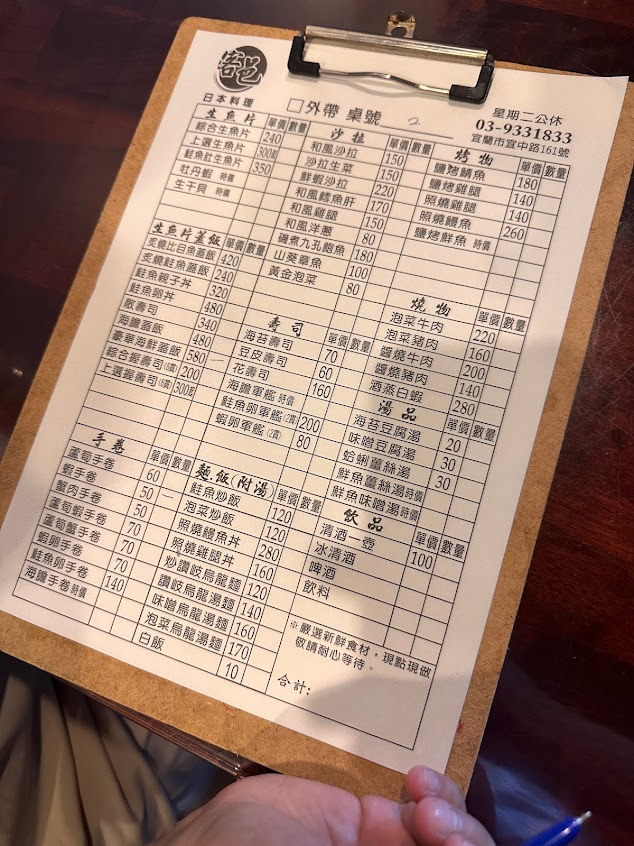 客邑
日本料理
□外帶 桌號 2
星期二公休
03-9331833
宜蘭市宜中路161號
生魚片 單價 數量
綜合生魚片 240
上選生魚片 300起
鮭魚肚生魚片 350
牡丹蝦 時價
生干貝 時價
生魚片蓋飯 單價 數量
炙燒比目魚蓋飯 420
炙燒鮭魚蓋飯 240
鮭魚親子丼 320
鮭魚卵丼 480
散壽司 340
海膽蓋飯 480
豪華海鮮蓋飯 580
綜合握壽司(6貫) 200
上選握壽司(6貫) 300起
手卷 單價 數量
蘆筍手卷 60
蝦手卷 50
蟹肉手卷 50
蘆筍蝦手卷 70
蘆筍蟹手卷 70
蝦卵手卷 70
鮭魚卵手卷 140
海膽手卷 時價
沙拉 單價 數量
和風沙拉 150
沙拉生菜 150
鮮蝦沙拉 220
和風鱈魚肝 170
和風雞腿 150
和風洋蔥 80
磯煮九孔鮑魚 180
山葵章魚 100
黃金泡菜 80
壽司 單價 數量
海苔壽司 70
豆皮壽司 60
花壽司 160
海膽軍艦 時價
鮭魚卵軍艦(2貫) 200
蝦卵軍艦(2貫) 80
麵.飯(附湯) 單價 數量
鮭魚炒飯 120
泡菜炒飯 120
照燒鰻魚丼 280
照燒雞腿丼 160
炒讚岐烏龍麵 120
讚岐烏龍湯麵 140
味噌烏龍湯麵 160
泡菜烏龍湯麵 170
白飯 10
烤物 單價 數量
鹽烤鯖魚 180
鹽烤雞腿 140
照燒雞腿 140
照燒鰻魚 260
鹽烤鮮魚 時價
燒物 單價 數量
泡菜牛肉 220
泡菜豬肉 160
醬燒牛肉 200
醬燒豬肉 140
酒蒸白蝦 280
湯品 單價 數量
海苔豆腐湯 20
味噌豆腐湯 30
蛤蜊薑絲湯 30
鮮魚薑絲湯 時價
鮮魚味噌湯 時價
飲品 單價 數量
清酒一壺 100
冰清酒
啤酒
飲料
※嚴選新鮮食材，現點現做
敬請耐心等待。
合計: